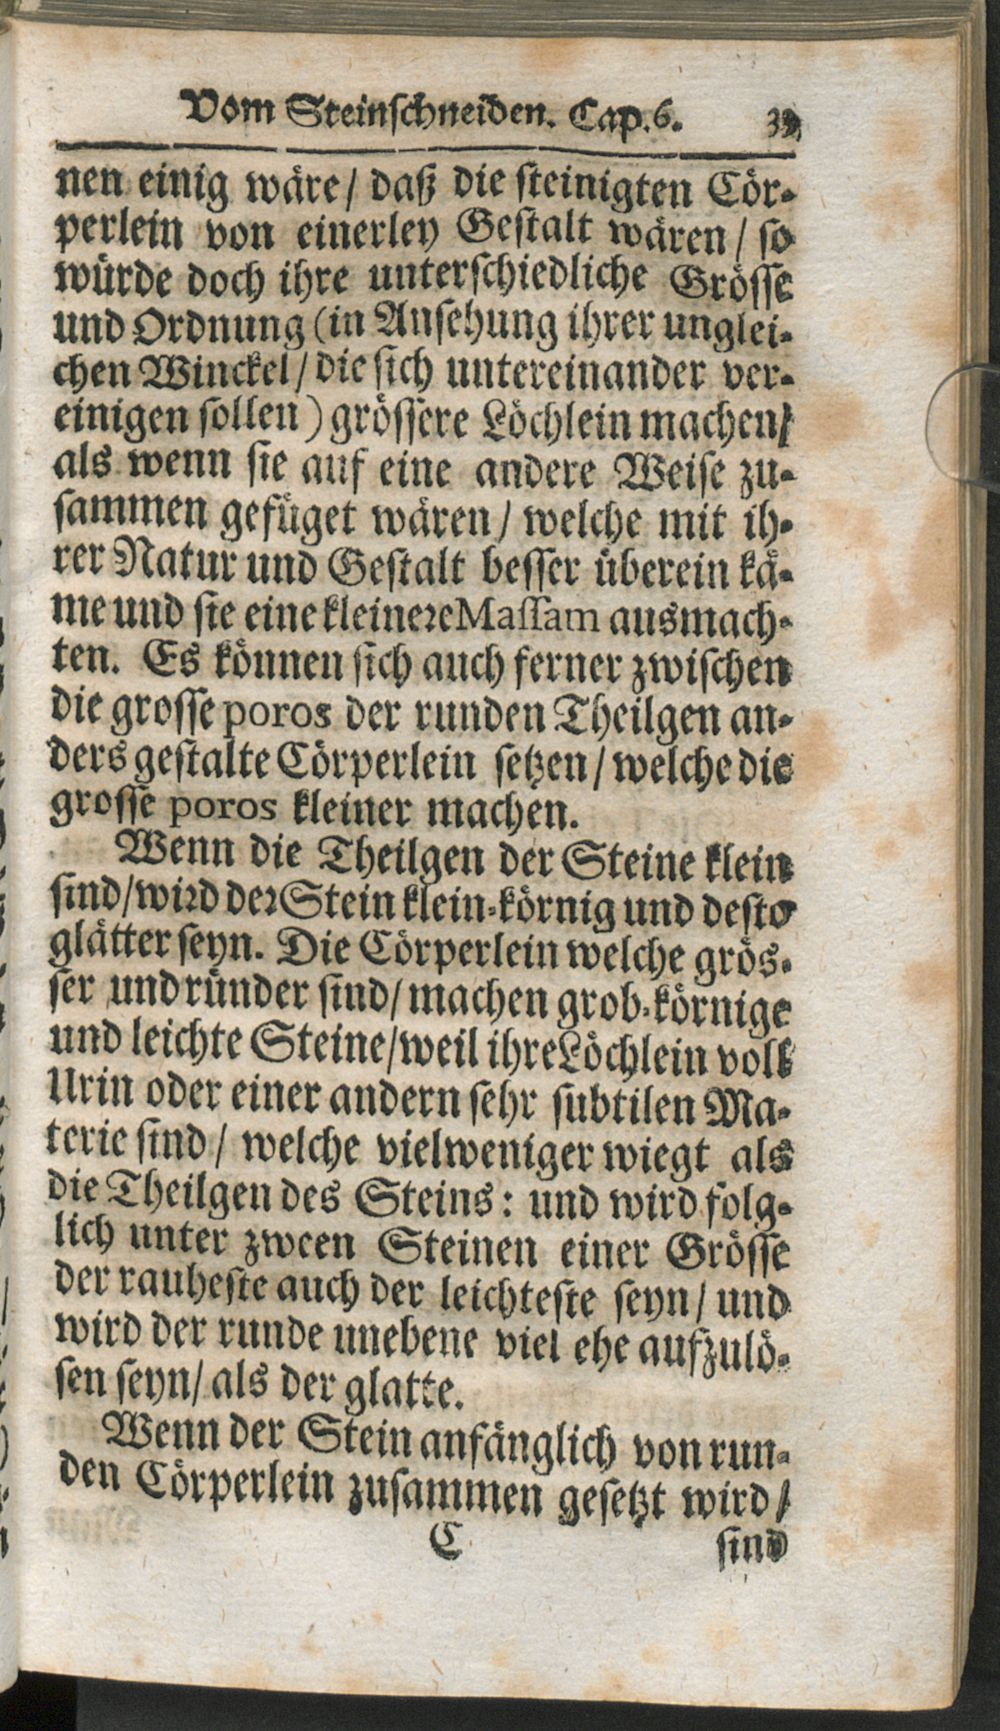 Vom Steinschneiden. Cap. 6.
nen einig wäre / daß die steinigten Cör-
perlein von einerley Gestalt wären / so
würde doch ihre unterschiedliche Grösse
und Ordnung (in Ansehung ihrer unglei-
chen Winckel / die sich untereinander ver-
einigen sollen) grössere Löchlein machen /
als wenn sie auf eine andere Weise zu-
sammen gefüget wären / welche mit ih-
rer Natur und Gestalt besser überein kä-
me und sie eine kleinere Massam ausmach-
ten. Es können sich auch ferner zwischen
die grosse poros der runden Theilgen an-
ders gestalte Cörperlein setzen / welche die
grosse poros kleiner machen.
Wenn die Theilgen der Steine klein
sind / wird der Stein klein-körnig und desto
glätter seyn. Die Cörperlein welche grös-
ser und ründer sind / machen grob-körnige
und leichte Steine / weil ihre Löchlein voll
Urin oder einer andern sehr subtilen Ma-
terie sind / welche vielweniger wiegt als
die Theilgen des Steins: und wird folg-
lich unter zween Steinen einer Grösse
der rauheste auch der leichteste seyn / und
wird der runde unebene viel ehe aufzulö-
sen seyn / als der glatte.
Wenn der Stein anfänglich von run-
den Cörperlein zusammen gesetzt wird /
C sind